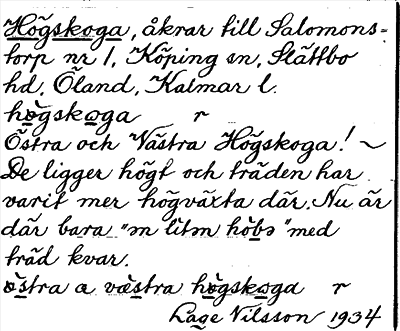 Högskoga, åkrar till Salomons-
torp nr 1, Köping sn, Slättbo
hd, Öland, Kalmar l.
högskoga r
Östra och Västra Högskoga! ~
De ligger högt och träden har
varit mer högväxta där. Nu är
där bara "m litm höbs" med
träd kvar.
östra a västra högskoga r
Lage Nilsson 1934